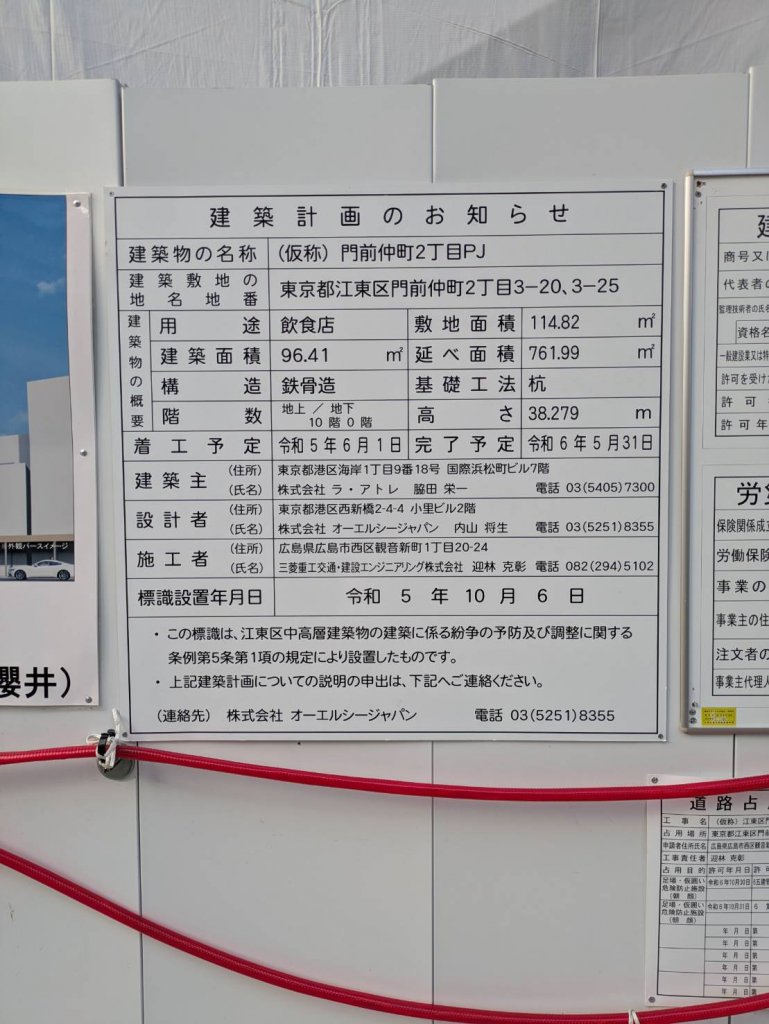 建築計画のお知らせ
建築物の名称 (仮称) 門前仲町2丁目PJ
建築敷地の地名地番 東京都江東区門前仲町2丁目3-20、3-25
建築物の概要
用途 飲食店 敷地面積 114.82 ㎡
建築面積 96.41 ㎡ 延べ面積 761.99 ㎡
構造 鉄骨造 基礎工法 杭
階数 地上 / 地下 10 階 0 階 高さ 38.279 m
着工予定 令和5年6月1日 完了予定 令和6年5月31日
建築主 (住所) 東京都港区海岸1丁目9番18号 国際浜松町ビル7階
(氏名) 株式会社 ラ・アトレ 脇田 栄一 電話 03(5405)7300
設計者 (住所) 東京都港区西新橋2-4-4 小里ビル2階
(氏名) 株式会社 オーエルシージャパン 内山 将生 電話 03(5251)8355
施工者 (住所) 広島県広島市西区観音新町1丁目20-24
(氏名) 三菱重工交通・建設エンジニアリング株式会社 迎林 克彰 電話 082(294)5102
標識設置年月日 令和 5 年 10 月 6 日
・この標識は、江東区中高層建築物の建築に係る紛争の予防及び調整に関する
条例第5条第1項の規定により設置したものです。
・上記建築計画についての説明の申出は、下記へご連絡ください。
(連絡先) 株式会社 オーエルシージャパン 電話 03(5251)8355
外観パースイメージ
櫻井)
商号又は
代表者の
監理技術者の氏名
資格名
一般建設業又は特
許可を受けた
許可
許可年
労災
保険関係成立
労働保険
事業の
事業主の住
注文者の
事業主代理人
道路占
工事名 (仮称) 江東区門
占用場所 東京都江東区門前
申請者住所氏名 広島県広島市西区観音新
工事責任者 迎林 克彰
占用目的 許可年月日 許
足場・仮囲い
危険防止施設
(朝顔)
足場・仮囲い
危険防止施設
(朝顔)
年 月 日 第
年 月 日 第
年 月 日 第
年 月 日 第
年 月 日 第